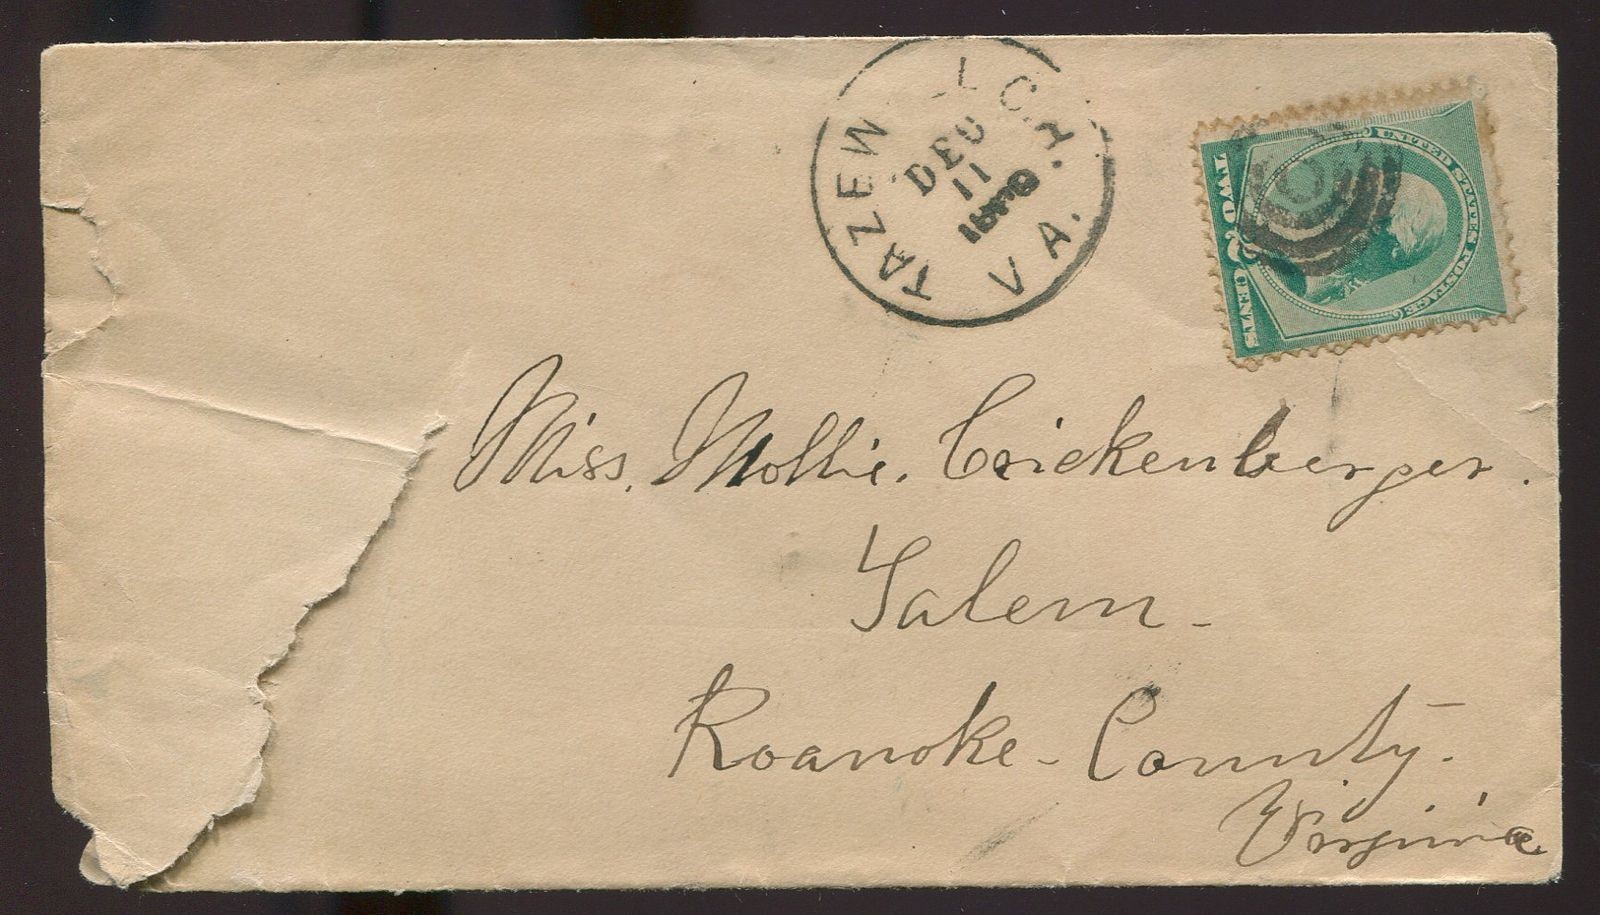 TAZEW L C.H. VA.
DEC
11
UNITED STATES POSTAGE
TWO 2 CENTS
Miss. Mollie. Crickenberger.
Salem-
Roanoke-County.
Virginia